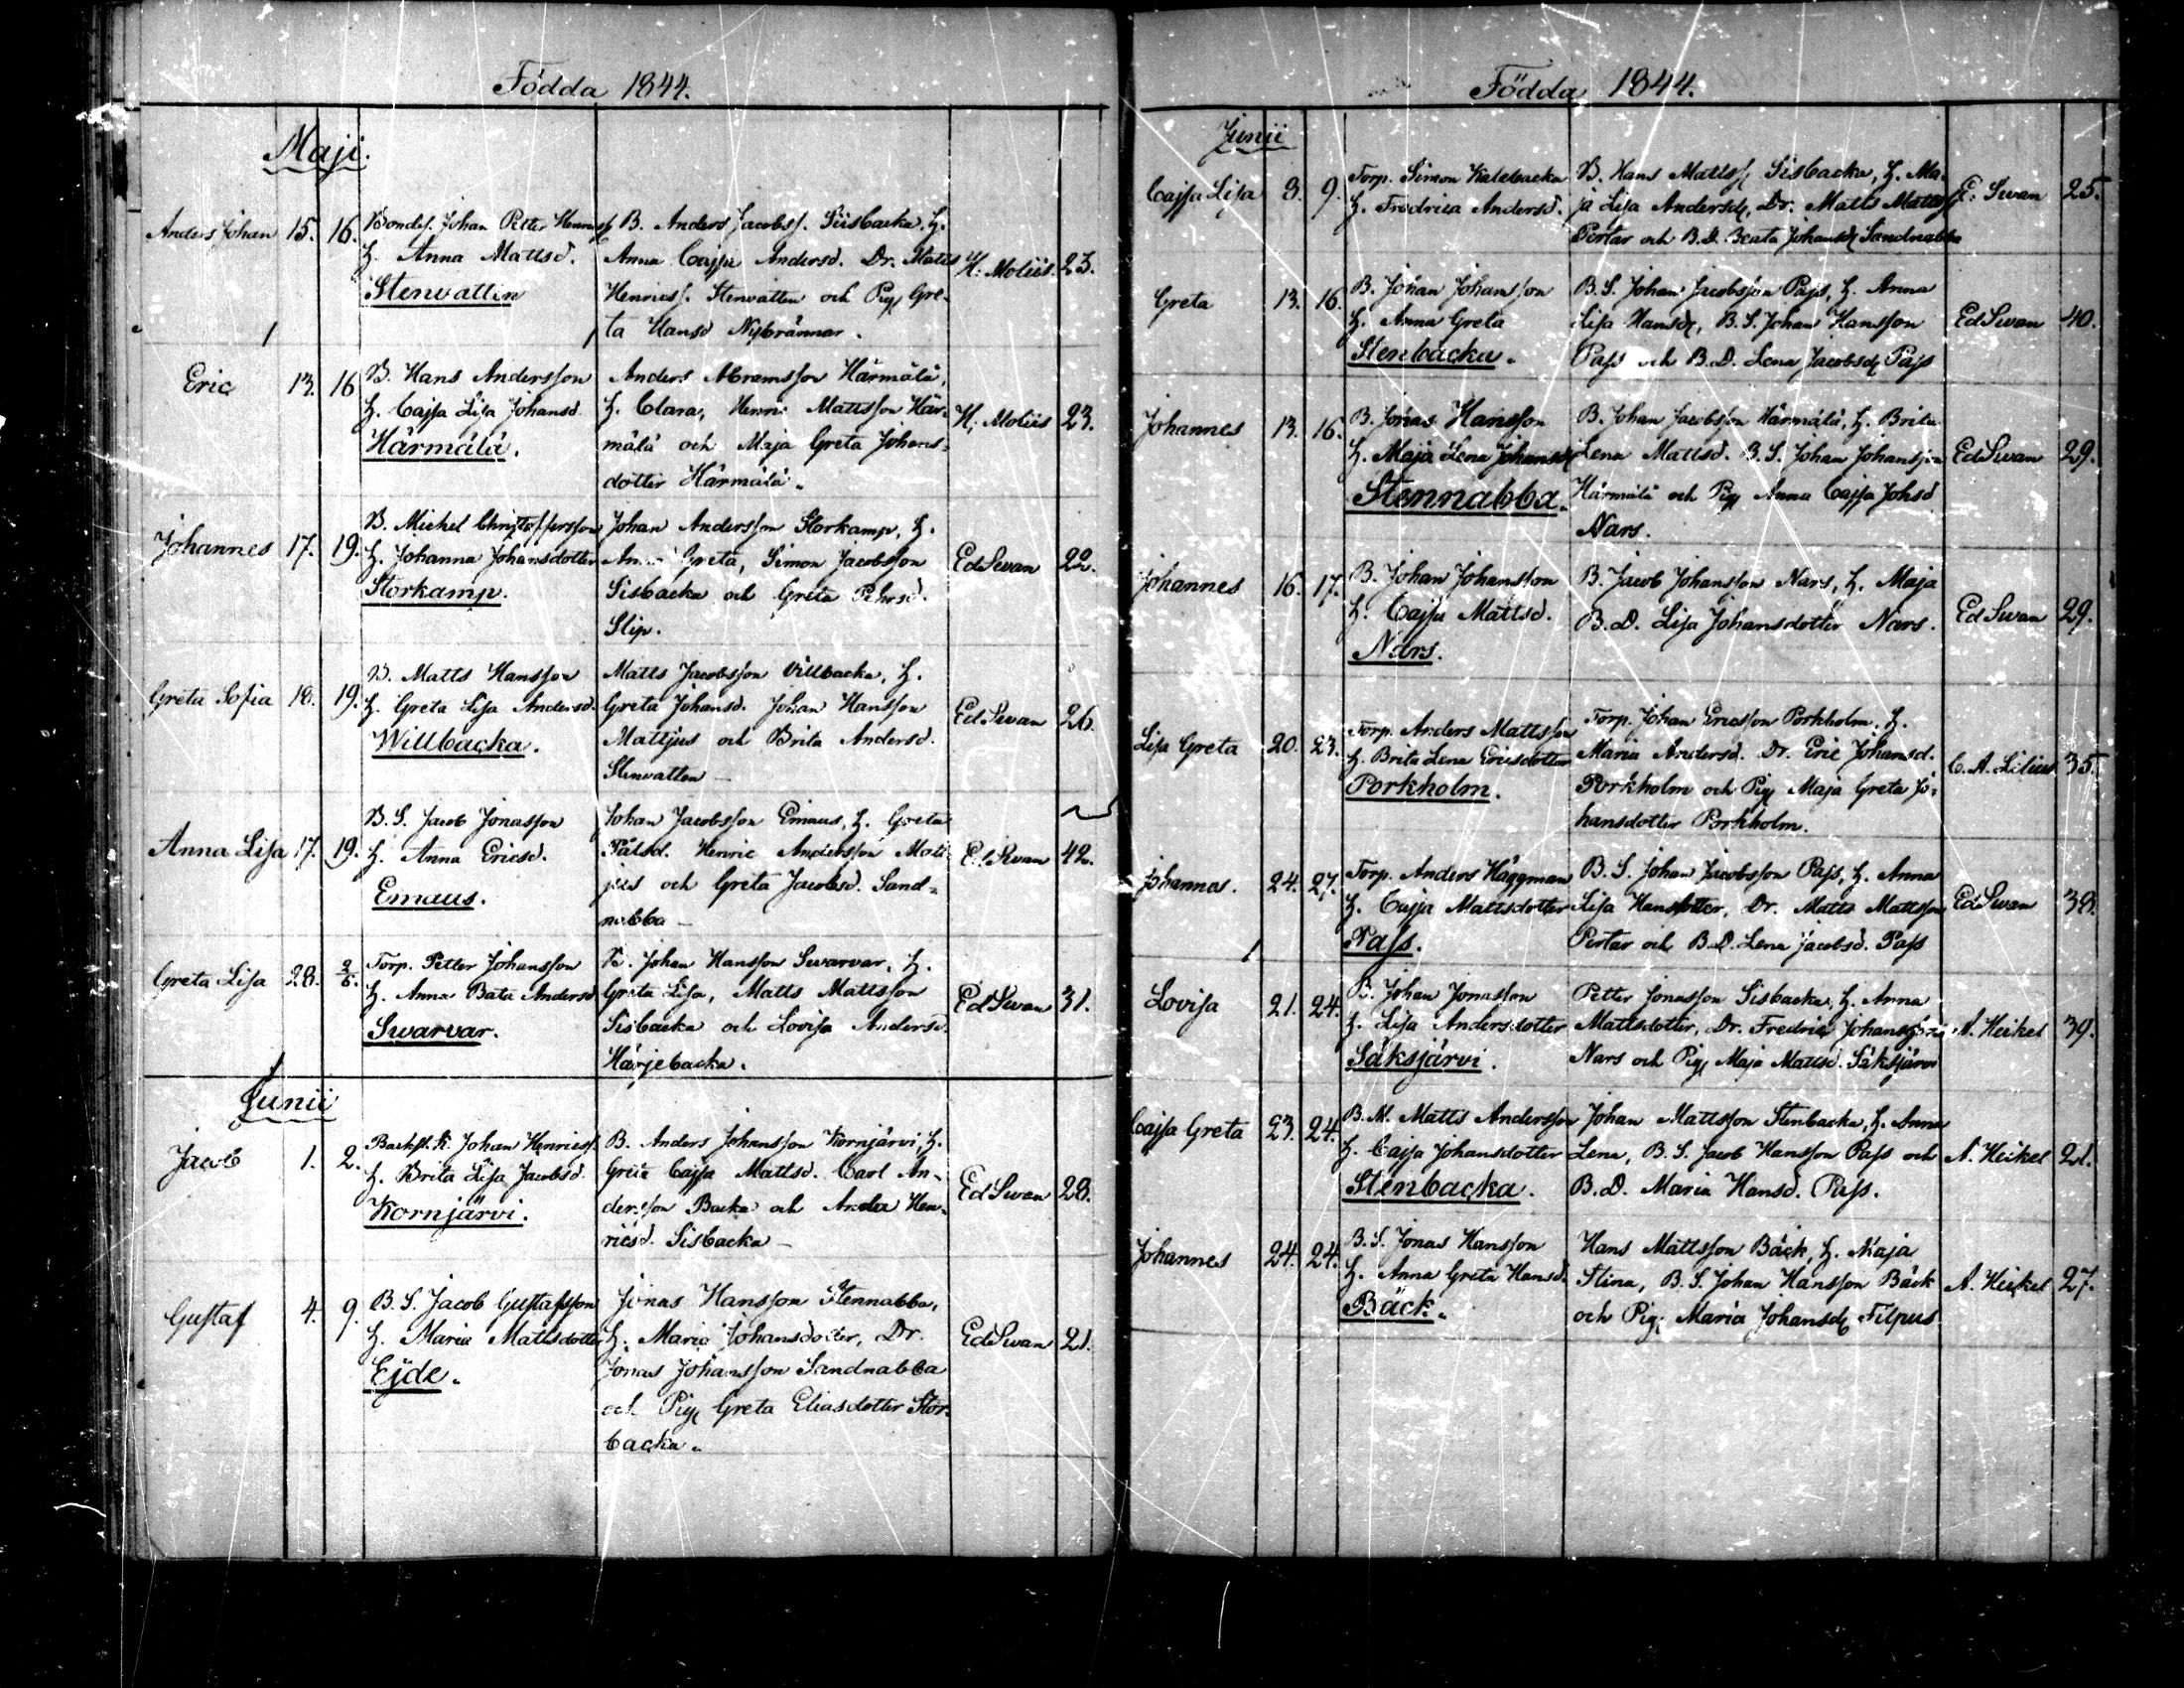 Födda 1844.
Maji.
Anders Johan 15. 16. Bondes. Johan Petter Henricsſ B. Anders Jacobsſ. Siisbacka, H.
H. Anna Mattsd. Anna Cajsa Andersd. Dr. Matts H. Moliis. 23.
Stenvatten Henricsſ. Stenvatten och Pig. Gre-
ta Hansd Nybrännar.
Eric 13. 16 B. Hans Andersson Anders Abramsson Härmälä,
H. Cajsa Lisa Johansd. H. Clara, Henric Mattsson Här- H. Moliis 23.
Härmälä. mälä och Maja Greta Johans-
dotter Härmälä.
Johannes 17. 19. B. Michel Christoffersson Johan Andersson Storkamp, H.
H. Johanna Johansdotter Anna Greta, Simon Jacobsson Ed Swan 22.
Storkamp. Sisbacka och Greta Pehrsd.
Slip.
Greta Sofia 18. 19. B. Matts Hansson Matts Jacobsson Villbacka, H.
H. Greta Lisa Andersd. Greta Johansd. Johan Hansson Ed Swan 26.
Willbacka. Mattjus och Brita Andersd.
Stenvatten
Anna Lisa 17. 19. B. S. Jacob Jonasson Johan Jacobsson Emaus, H. Greta
H. Anna Ericsd. Pålsd. Henric Andersson Matt- Ed Swan 42.
Emaus. jus och Greta Jacobsd. Sand-
nabba
Greta Lisa 28. 2/6. Torp. Petter Johansson B. Johan Hansson Swarvar, H.
H. Anna Bata Andersd Greta Lisa, Matts Mattsson Ed Swan 31.
Swarvar. Sisbacka och Lovisa Andersd.
Härjebacka.
Junii
Jacob 1. 2. Backst. K. Johan Henricsſ. B. Anders Johansson Kornjärvi, H.
H. Brita Lisa Jacobsd. Greta Cajsa Mattsd. Carl An- Ed Swan 28.
Kornjärvi. dersson Backa och Anna Hen-
ricsd. Sisbacka
Gustaf 4. 9. B. S. Jacob Gustafsson Jonas Hansson Stennabba,
H. Maria Mattsdotter H. Maria Johansdotter, Dr. Ed Swan 21.
Ejde. Jonas Johansson Sandnabba
och Pig. Greta Eliasdotter Stor-
backa.
Födda 1844.
Junii
Cajsa Lisa 8. 9. Torp. Simon Kalebacka B. Hans Mattsſ Sisbacka, H. Ma-
H. Fredrica Andersd. ja Lisa Andersd, Dr. Matts Mattsſ E. Swan 25.
Portar och B.D. Beata Johansd Sandnabba
Greta 13. 16. B. Johan Johansson B. S. Johan Jacobsson Pass, H. Anna
H. Anna Greta Lisa Hansd, B. S. Johan Hansson Ed Swan 40.
Stenbacka. Pass och B.D. Lena Jacobsd Pass
Johannes 13. 16. B. Jonas Hansson B. Johan Jacobsson Härmälä, H. Brita
H. Maja Lena Johansd Lena Mattsd. B. S. Johan Johansson Ed Swan 29.
Stennabba. Härmälä och Pig Anna Cajsa Johsd
Nars.
Johannes 16. 17. B. Johan Johansson B. Jacob Johansson Nars, H. Maja
H. Cajsa Mattsd. B. D. Lisa Johansdotter Nars. Ed Swan 29.
Nars.
Lisa Greta 20. 23. Torp. Anders Mattsson Torp. Johan Ericsson Porkholm. H.
H. Brita Lena Ericsdotter Maria Andersd. Dr. Eric Johansd. C. A. Lilius 35.
Porkholm. Porkholm och Pig Maja Greta Jo-
hansdotter Porkholm.
Johannes. 24. 27. Torp. Anders Häggman B. S. Johan Jacobsson Pass, H. Anna
H. Cajsa Mattsdotter Lisa Hansdotter, Dr. Matts Mattsson Ed Swan 38.
Pass. Portar och B.D. Lena Jacobsd. Pass
Lovisa 21. 24. B. Johan Jonasson Petter Jonasson Sisbacka, H. Anna
H. Lisa Andersdotter Mattsdotter, Dr. Fredric Johansson A. Heikel 39.
Säksjärvi. Nars och Pig Maja Mattsd. Säksjärvi
Cajsa Greta 23. 24. B. M. Matts Andersson Johan Mattsson Stenbacka, H. Anna
H. Cajsa Johansdotter Lena, B. S. Jacob Hansson Pass och A. Heikel 21.
Stenbacka. B. D. Maria Hansd. Pass.
Johannes 24. 24. B. S. Jonas Hansson Hans Mattsson Bäck, H. Maja
H. Anna Greta Hansd. Stina, B. S. Johan Hansson Bäck A. Heikel 27.
Bäck. och Pig. Maria Johansd Filpus